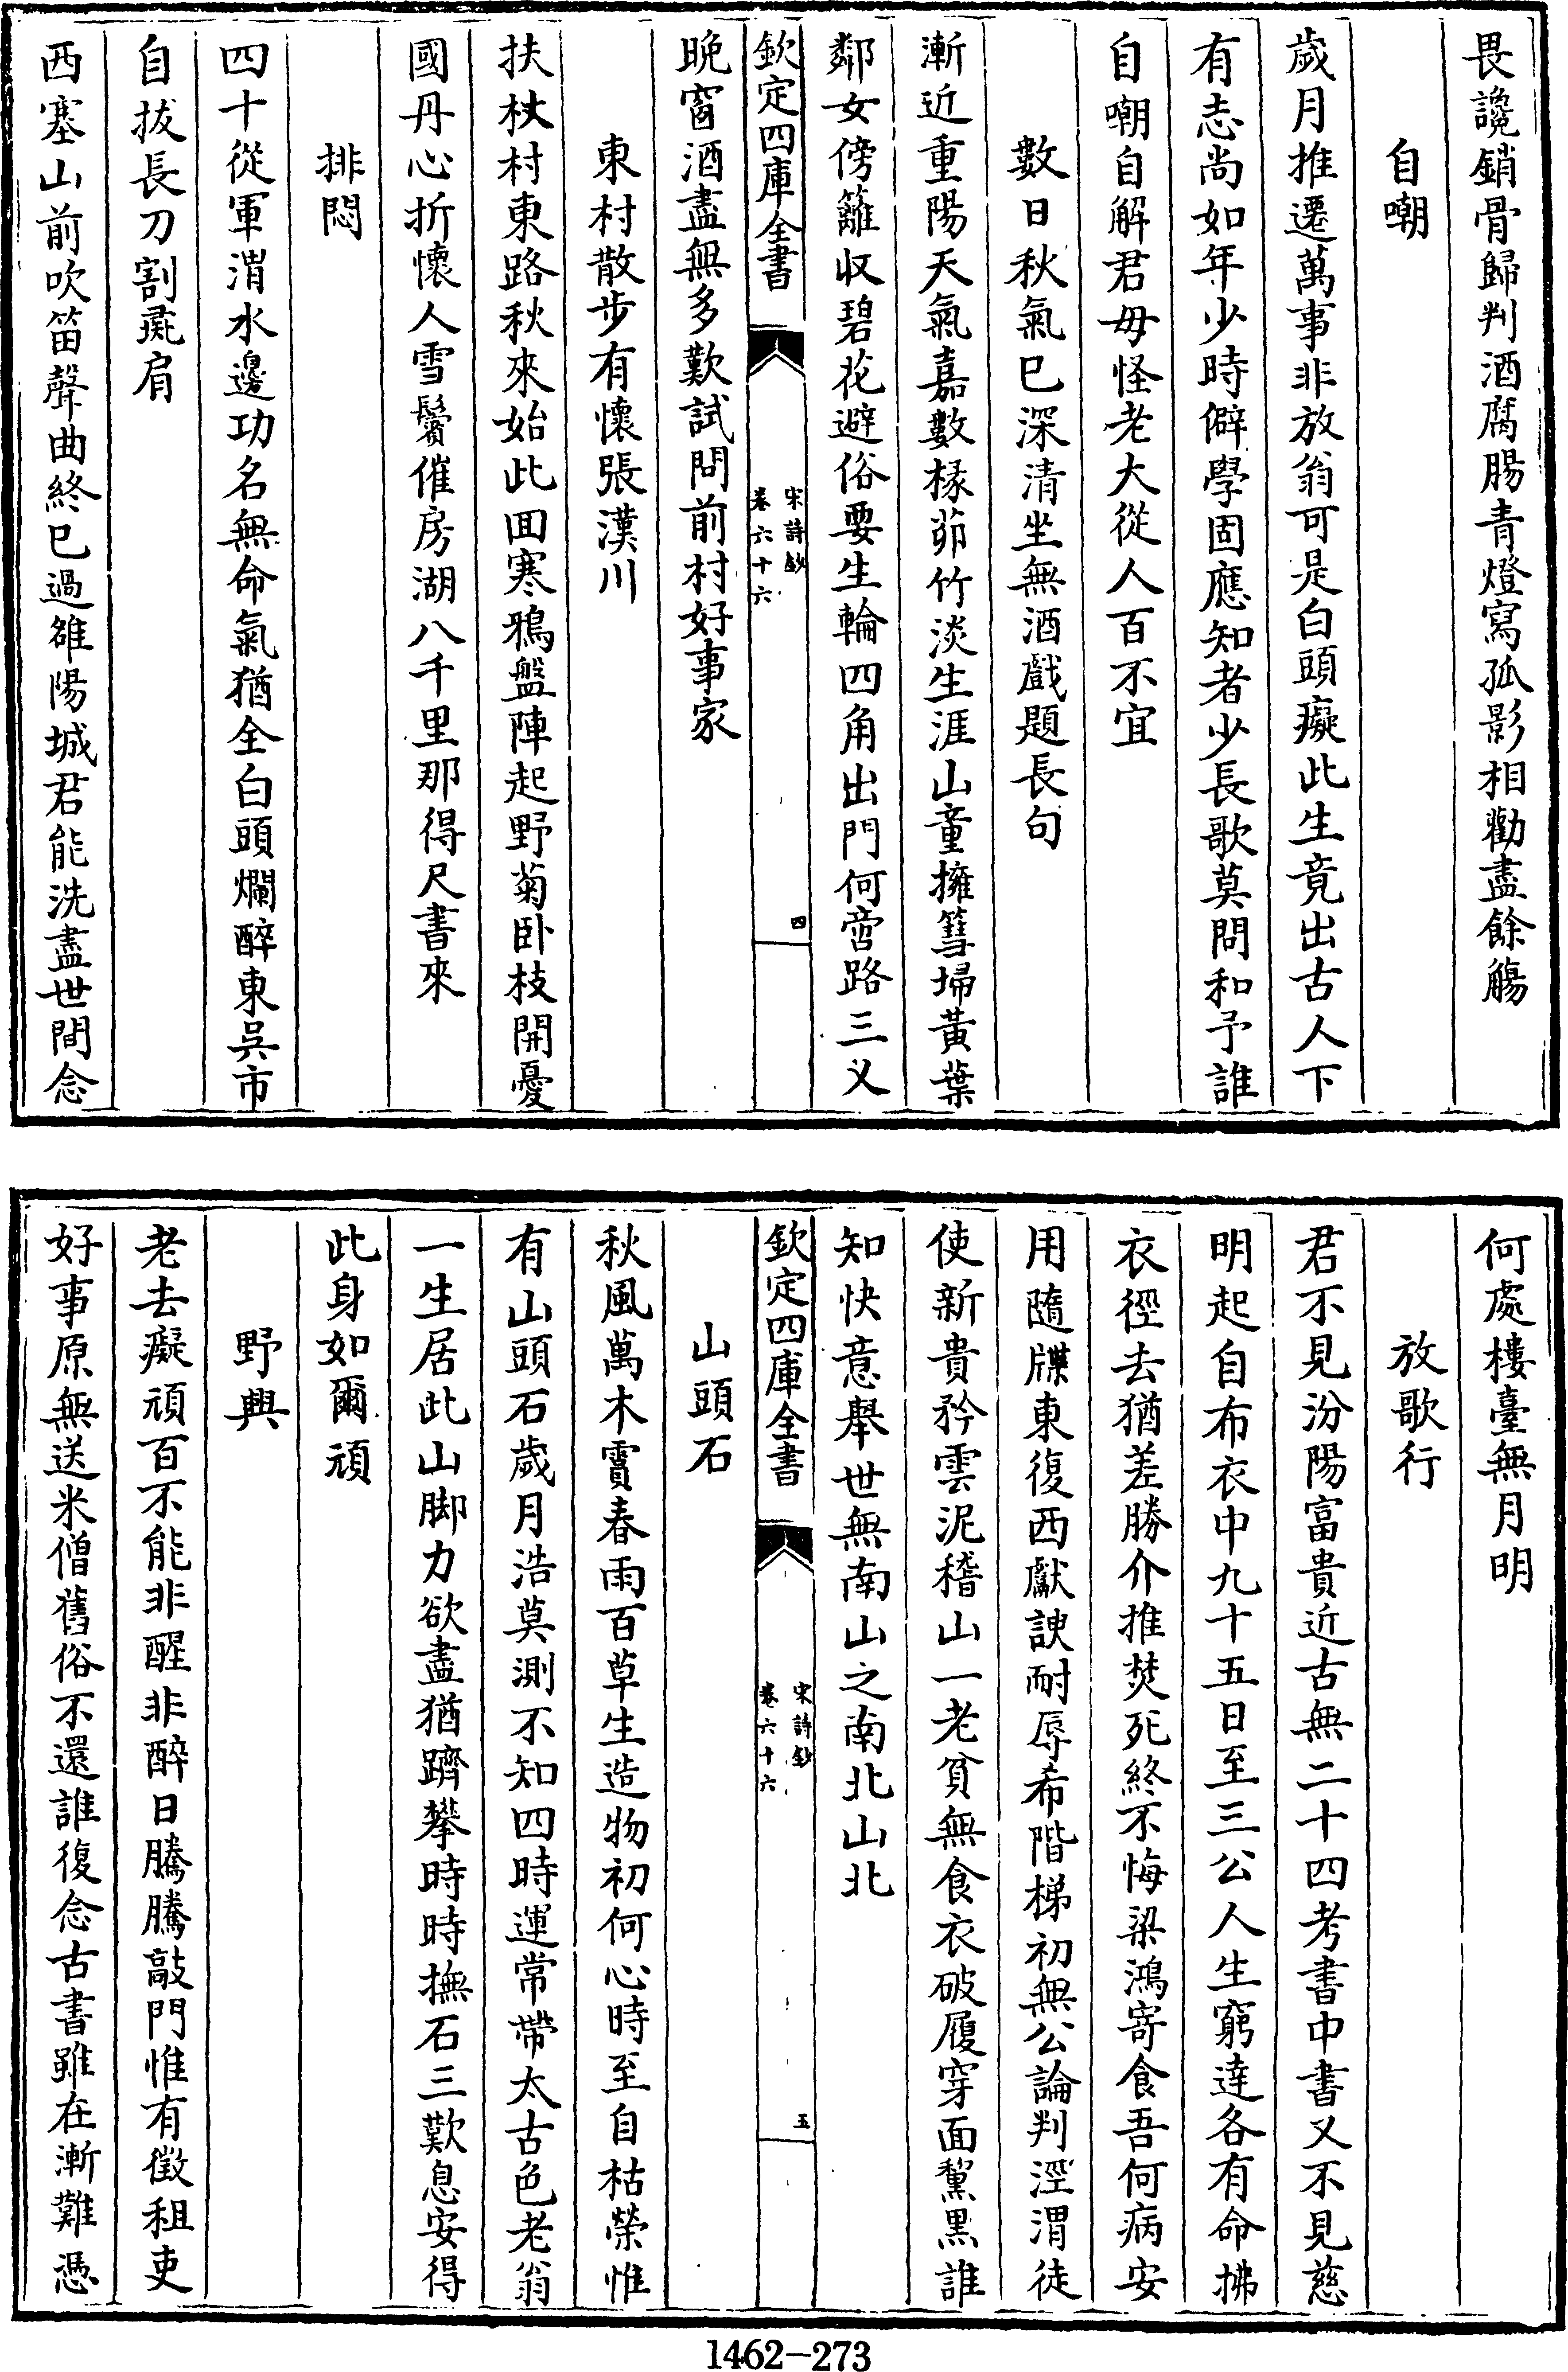 畏讒銷骨歸判酒腐腸青燈寫孤影相勸盡餘觴
自嘲
歲月推遷萬事非放翁可是白頭癡此生竟出古人下
有志尚如年少時僻學固應知者少長歌莫問和予誰
自嘲自解君毋怪老大從人百不宜
數日秋氣已深清坐無酒戲題長句
漸近重陽天氣嘉數椽茆竹淡生涯山童擁篲埽黃葉
鄰女傍籬收碧花避俗要生輪四角出門何啻路三义
欽定四庫全書
宋詩鈔
卷六十六
四
晚窗酒盡無多歎試問前村好事家
東村散步有懷張漢川
扶杖村東路秋來始此回寒鴉盤陣起野菊卧枝開憂
國丹心折懷人雪鬢催房湖八千里那得尺書來
排悶
四十從軍渭水邊功名無命氣猶全白頭爛醉東吳市
自拔長刀割彘肩
西塞山前吹笛聲曲終已過雒陽城君能洗盡世間念
何處樓臺無月明
放歌行
君不見汾陽富貴近古無二十四考書中書又不見慈
明起自布衣中九十五日至三公人生窮達各有命拂
衣徑去猶差勝介推焚死終不悔梁鴻寄食吾何病安
用隨牒東復西獻諛耐辱希階梯初無公論判涇渭徒
使新貴矜雲泥稽山一老貧無食衣破履穿面黧黑誰
知快意舉世無南山之南北山北
欽定四庫全書
宋詩鈔
卷六十六
五
山頭石
秋風萬木霣春雨百草生造物初何心時至自枯榮惟
有山頭石歲月浩莫測不知四時運常帶太古色老翁
一生居此山脚力欲盡猶躋攀時時撫石三歎息安得
此身如爾頑
野興
老去癡頑百不能非醒非醉日騰騰敲門惟有徵租吏
好事原無送米僧舊俗不還誰復念古書雖在漸難憑
1462-273